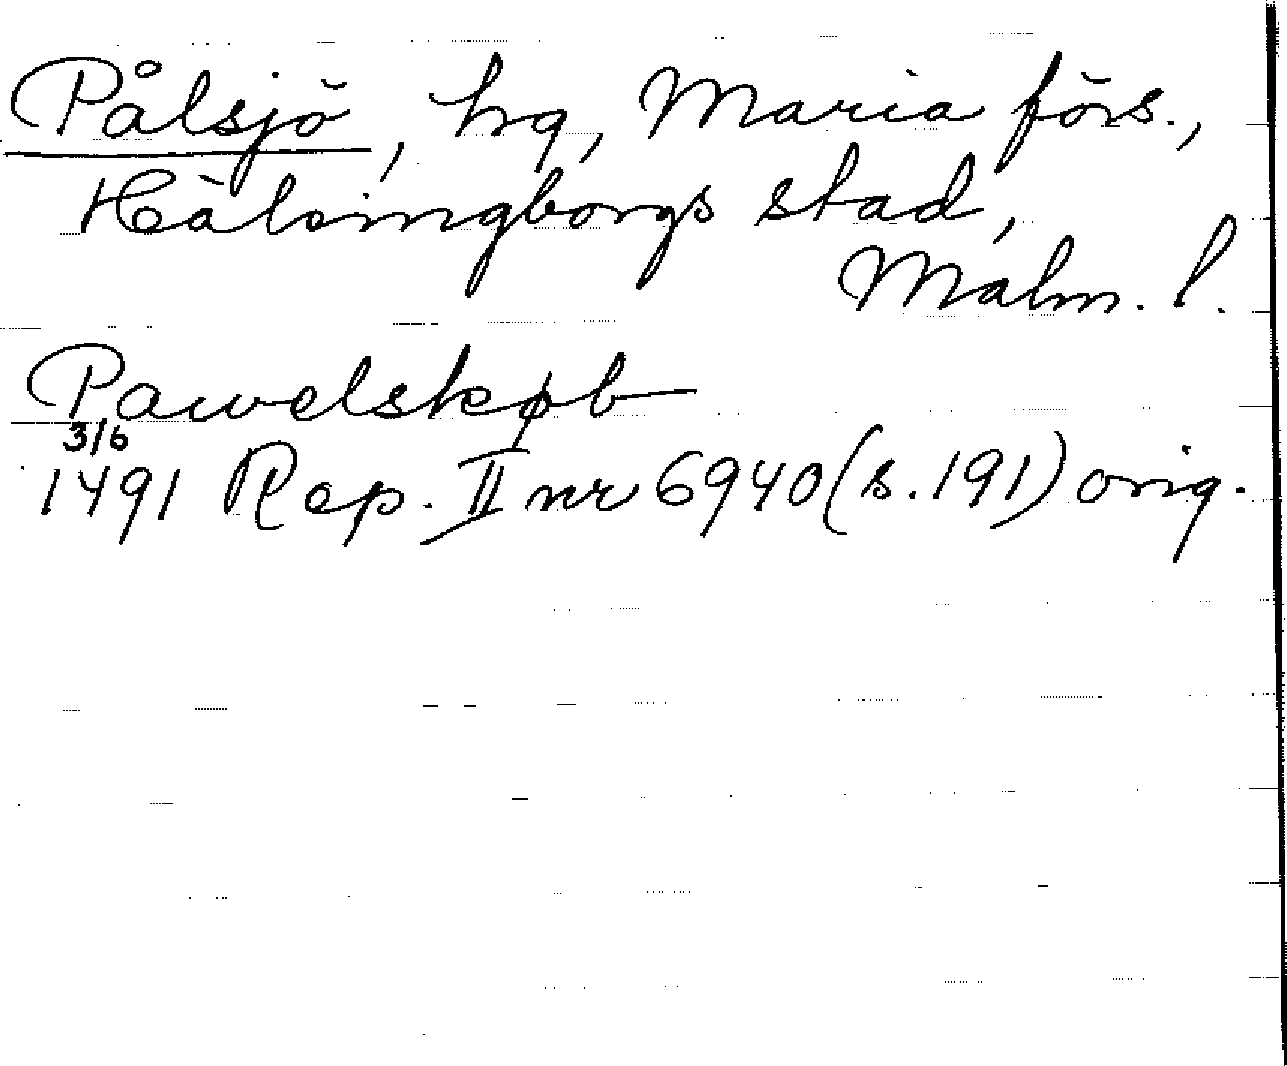 Pålsjö, hg, Maria förs.,
Hälsingborgs stad,
Malm. l.
Pawelskøb
3/6
1491 Rep. II nr 6940 (s. 191) orig.